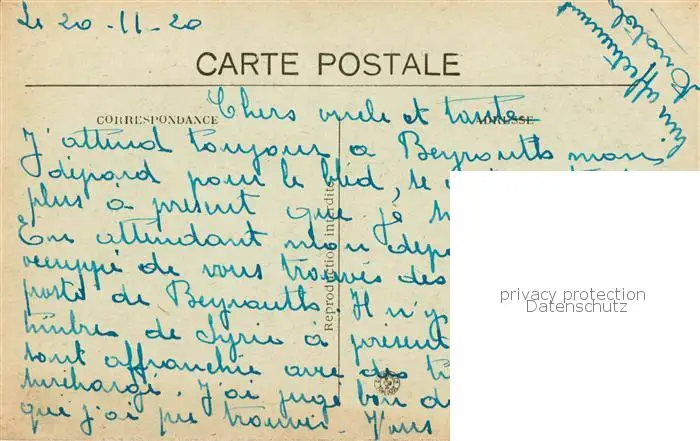 Le 20-11-20
bien affectueusement
CARTE POSTALE
CORRESPONDANCE
ADRESSE
Chers oncle et tante
J'attend toujour a Beyrouth mon
dépard pour le bled, je
plus à present que je
En attendant mon depa
occuppé de vous trouvés des
poste de Beyrouth. Il n'y
timbres de Syrie à present
sont affranchie avec des ti
surchargé. J'ai jugé bon d
que j'ai pu trouver. Vous
Reproduction interdite
privacy protection
Datenschutz